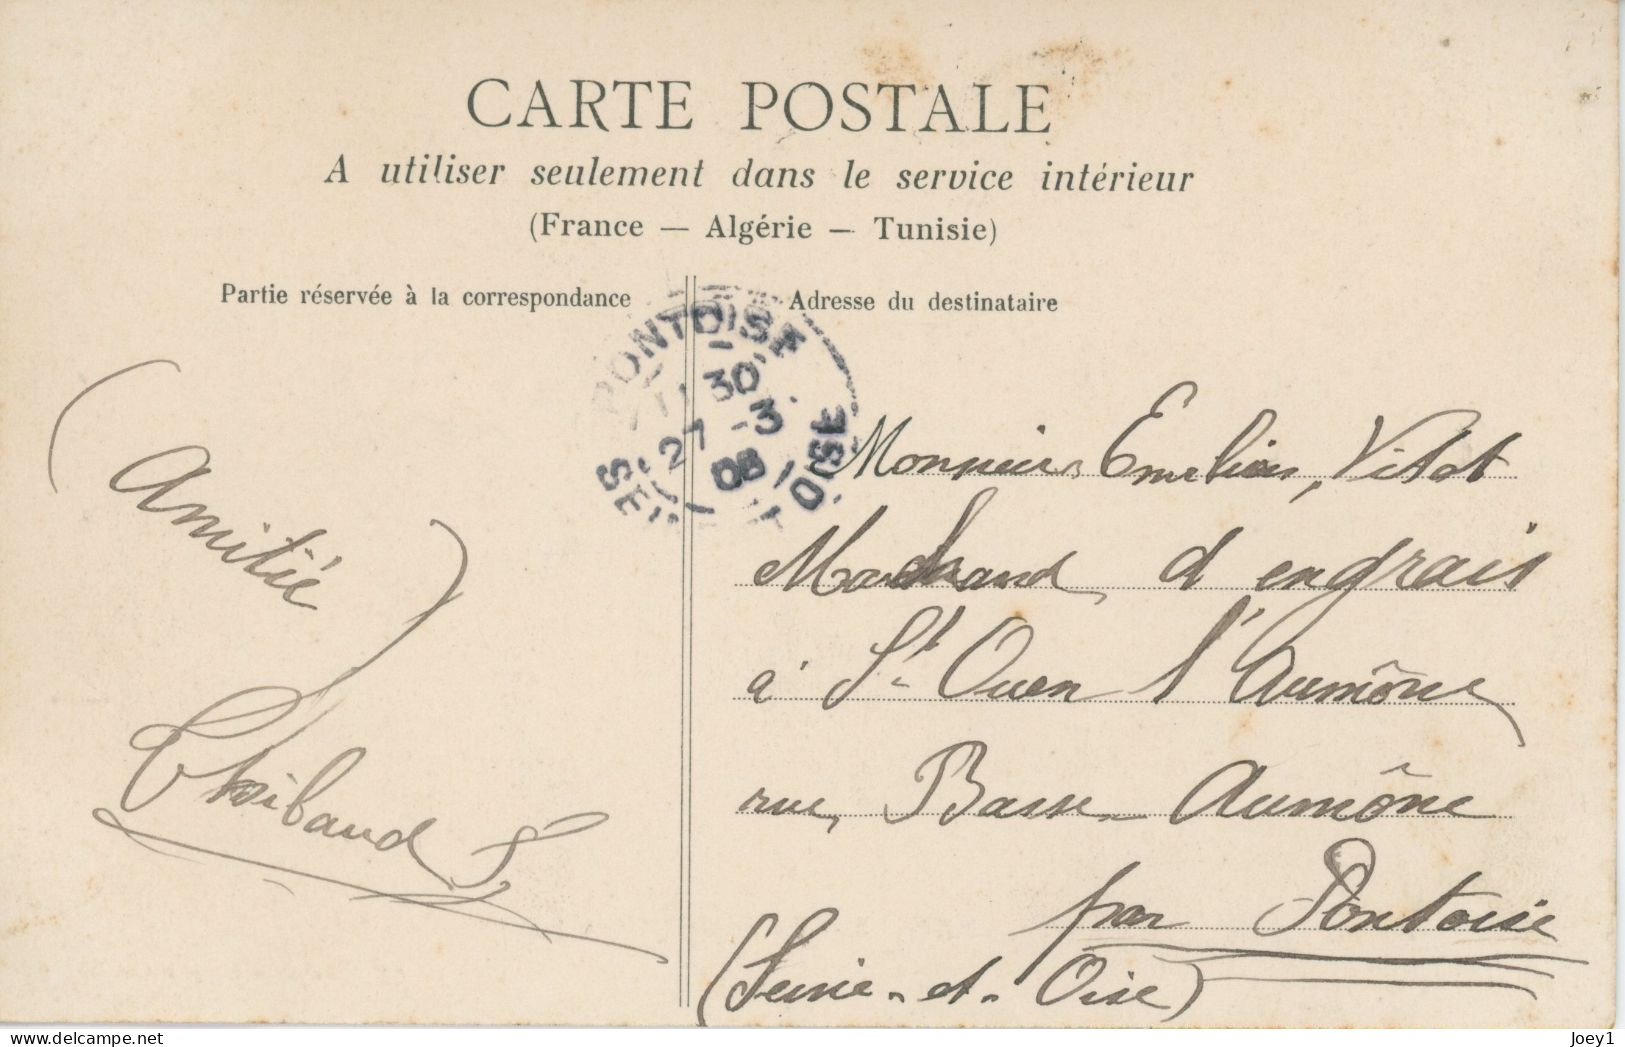 CARTE POSTALE
A utiliser seulement dans le service intérieur
(France — Algérie — Tunisie)
Partie réservée à la correspondance
Adresse du destinataire
PONTOISE
30
27 -3
08
SEINE ET OISE
Amitié
Thibaud
Monsieur Emilien Vitot
Marchand d'engrais
à St Ouen l'Aumône
rue Basse-Aumône
par Pontoise
(Seine-et-Oise)
Joey1